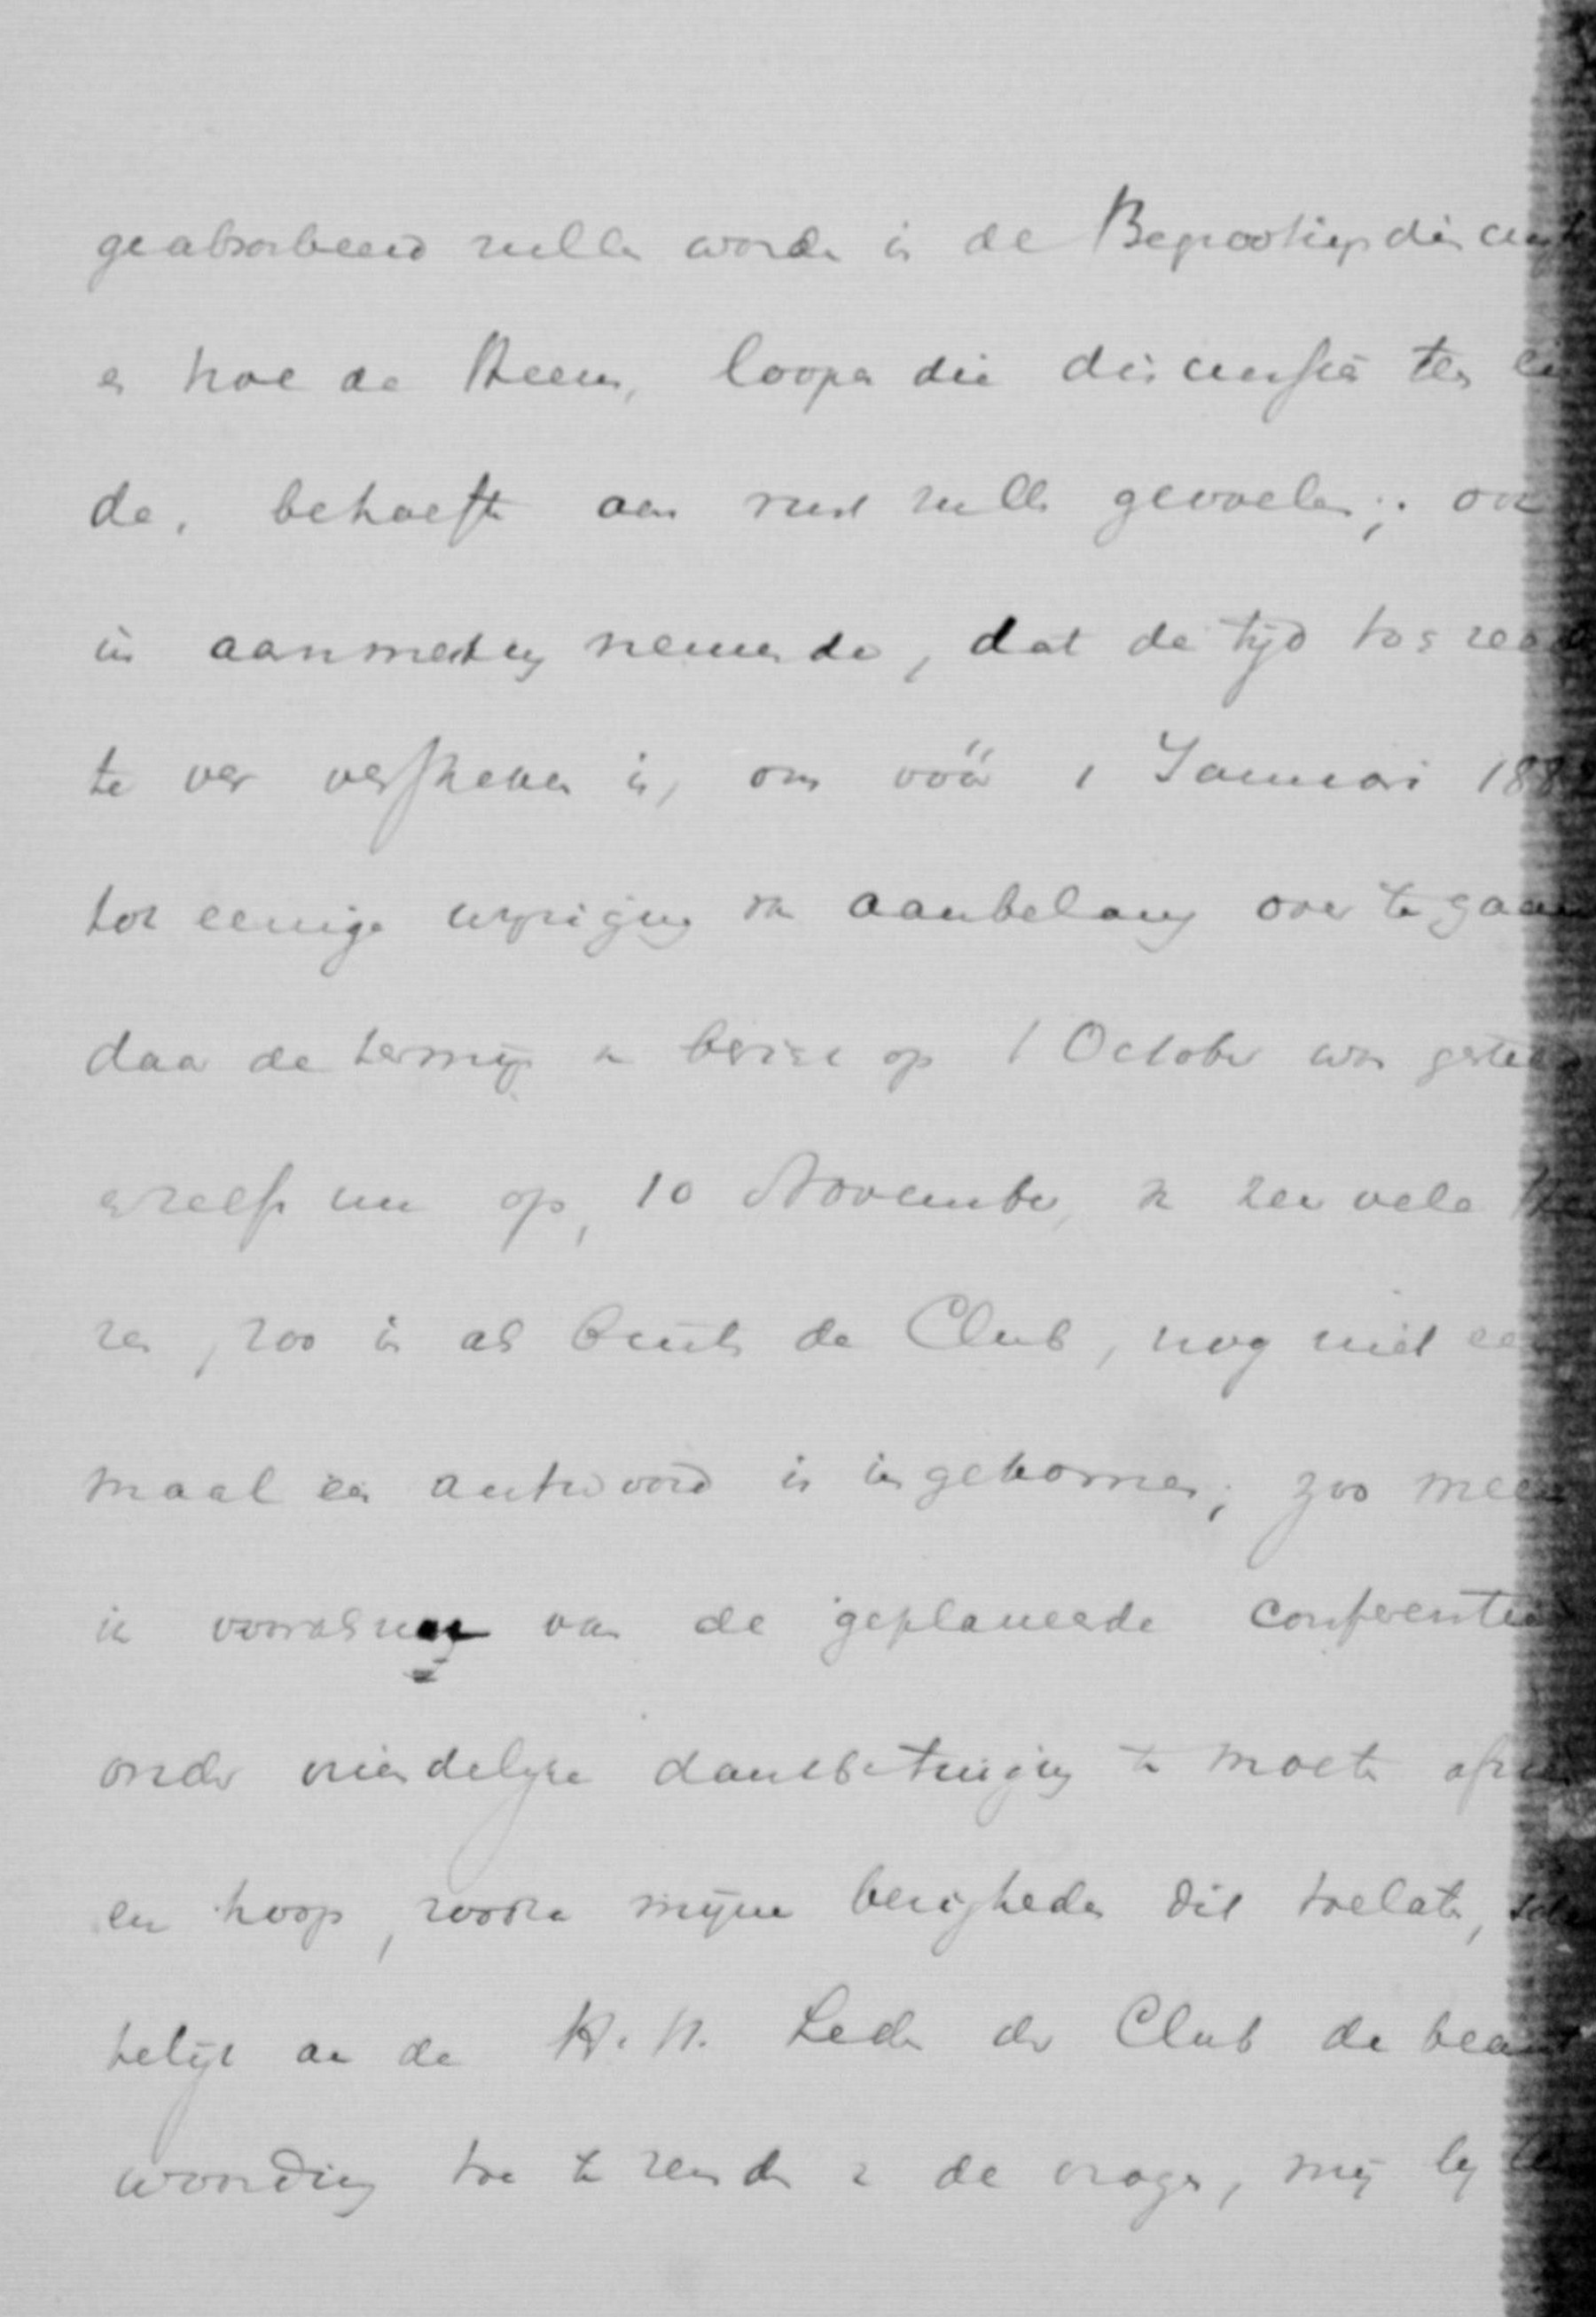 geabsorbeerd zullen worden in de Begrootingsdiscussie
en hoe de Heeren, loopen die discussiën ten ein
de, behoefte aan rust zullen gevoelen; ook
in aanmerking nemende, dat de tijd toch reeds
te ver verstreken is, om vóór 1 Januari 188
tot eenige wijziging van aanbelang over te gaan
daar de termijn van bericht op 1 October was gesteld
en zelfs nu op, 10 November, van zeer vele
zen, zoo in als buiten de Club, nog niet een
maal een antwoord is ingekomen; zoo meen
ik vooralsnog van de geplaneerde conferentie
onder vriendelijke dankbetuiging te moeten afzien
en hoop, zoodra mijne bezigheden dit toelaten,
telijk aan de H.H. Leden der Club de beant
woording toe te zenden van de vragen, mij bij